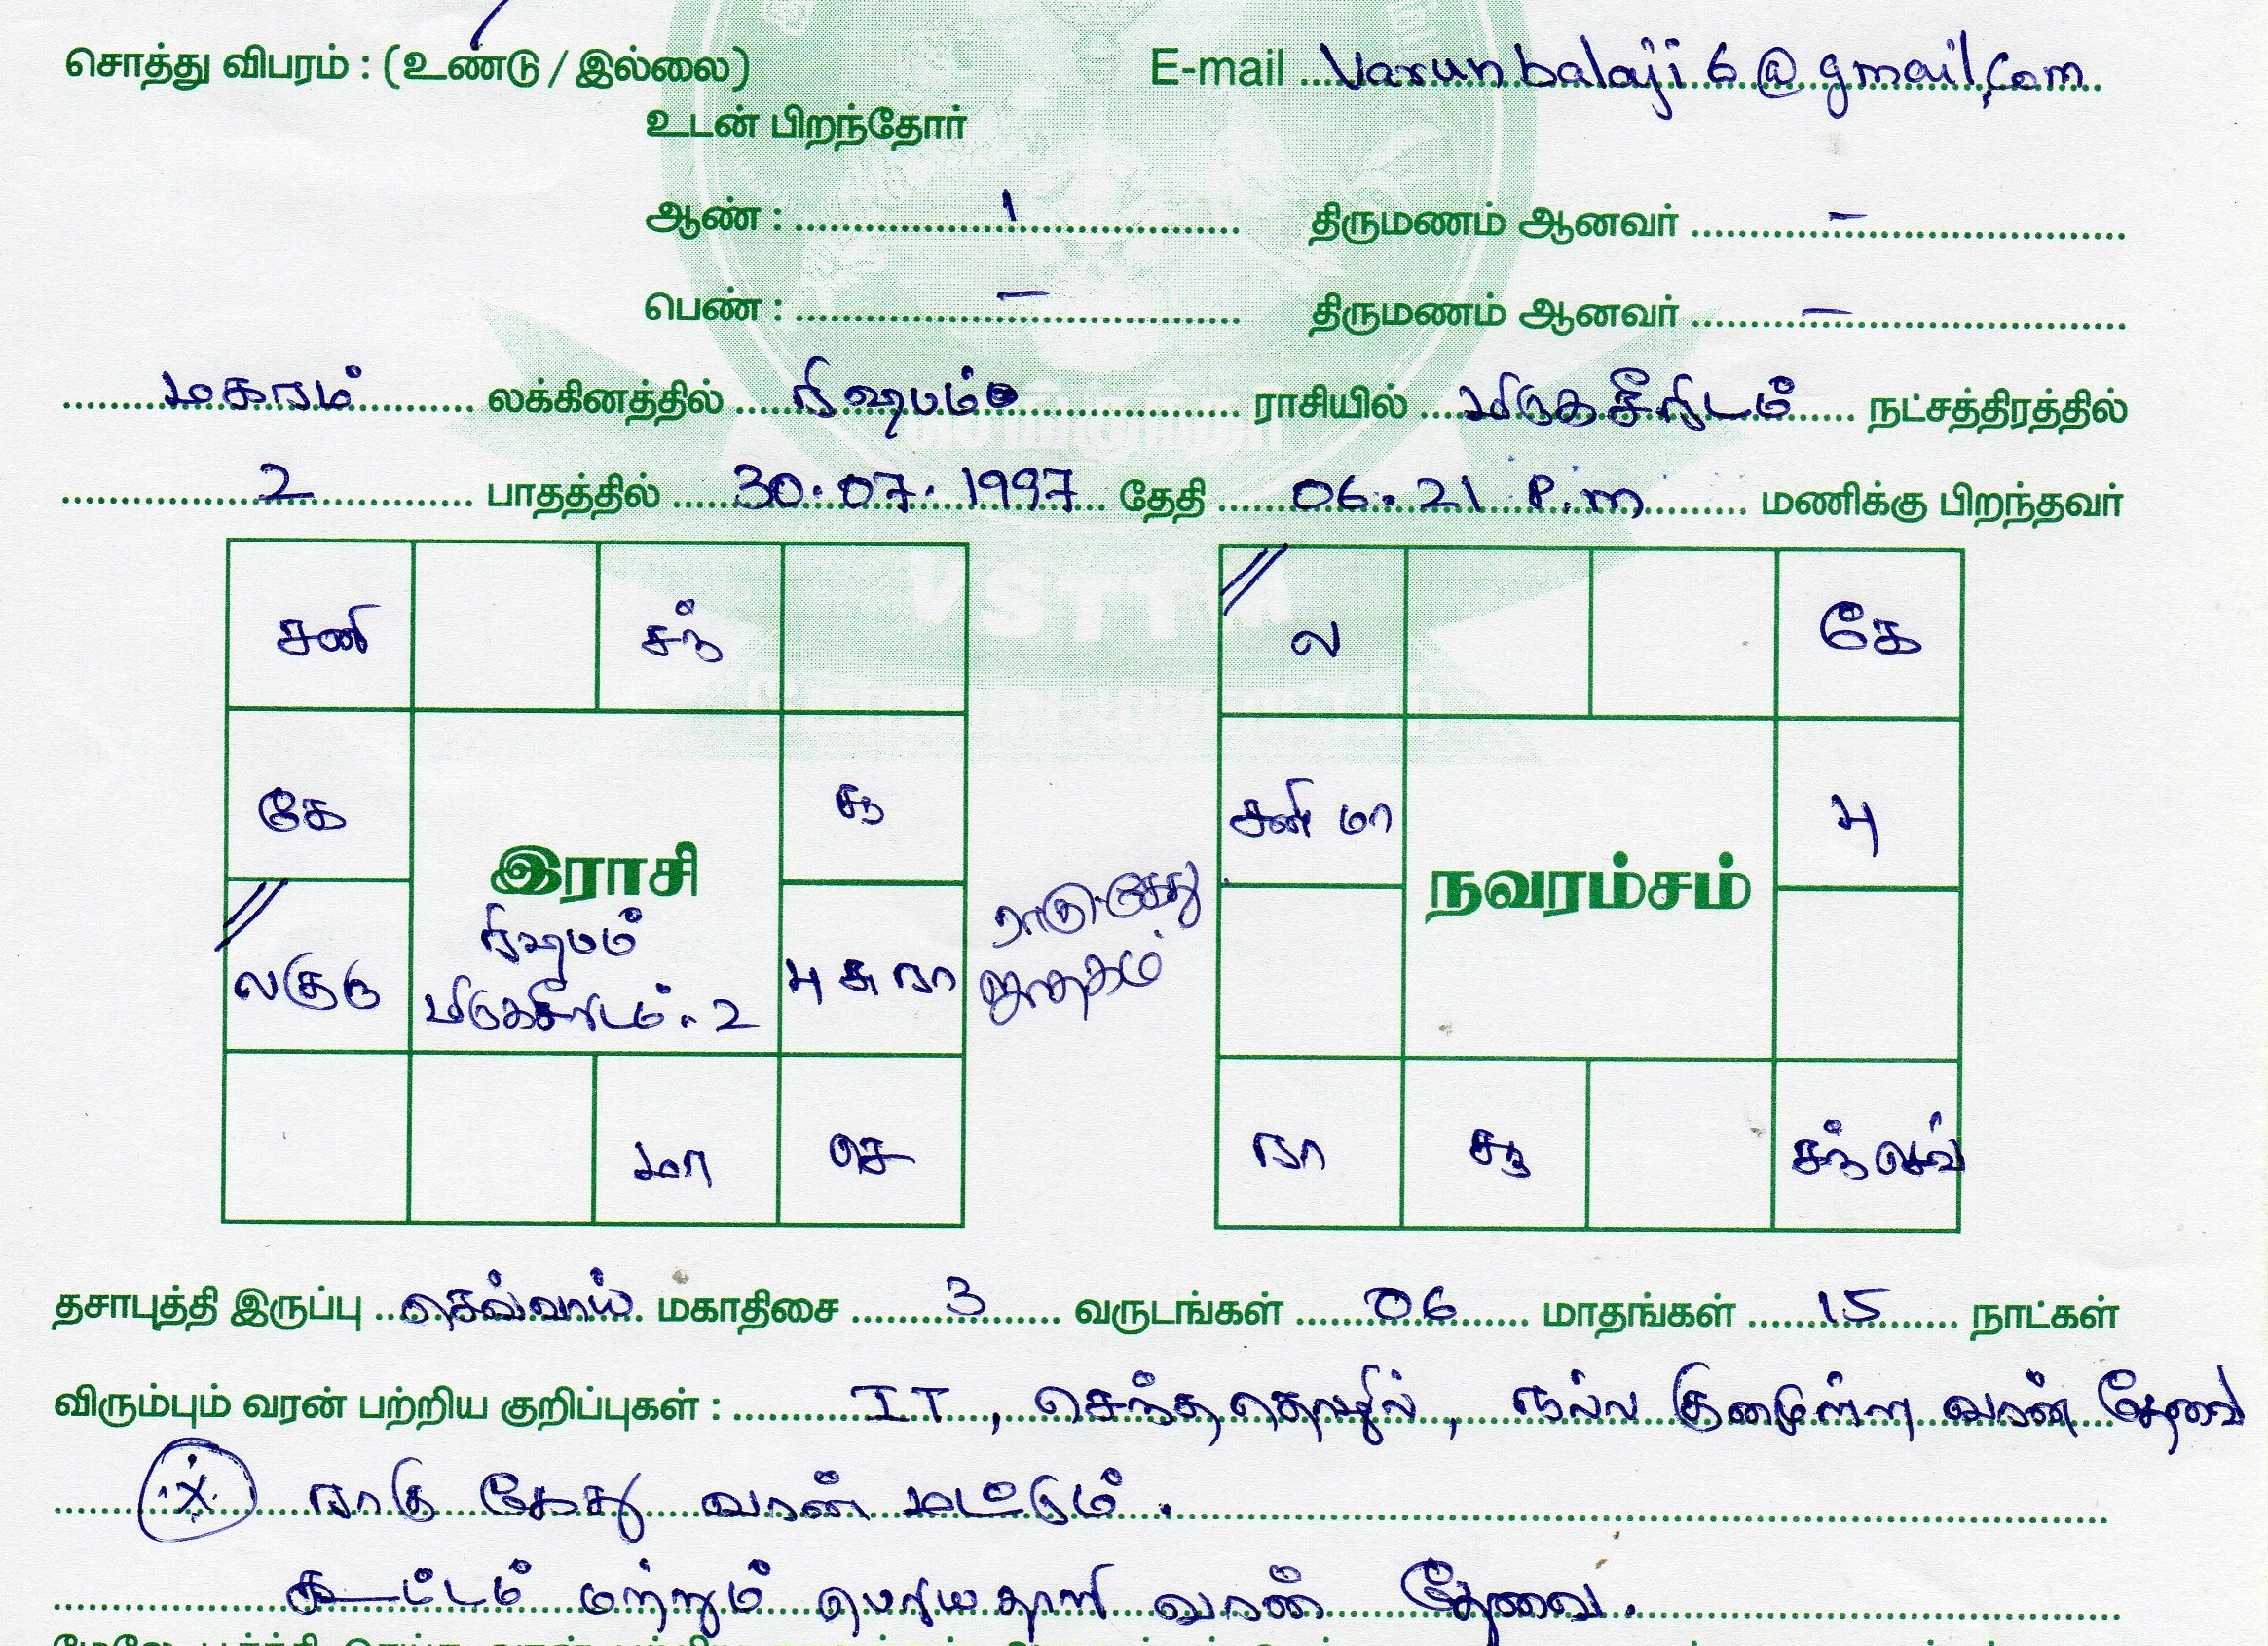 சொத்து விபரம் : (உண்டு / இல்லை) E-mail Varunbalaji6@gmail.com
உடன் பிறந்தோர்
ஆண் : 1 திருமணம் ஆனவர் –
பெண் : – திருமணம் ஆனவர் –
மகரம் லக்கினத்தில் ரிஷபம் ராசியில் மிருகசீரிடம் நட்சத்திரத்தில்
2 பாதத்தில் 30.07.1997 தேதி 06.21 P.m மணிக்கு பிறந்தவர்
VSTTM
சனி சந்
கே சூ
இராசி
ரிஷபம்
மிருகசீரிடம் . 2
லகுரு
பு சு ரா
மா செ
ராகு கேது
ஜாதகம்
ல கே
சனி மா பு
நவரம்சம்
ரா சூ சந்
தசாபுத்தி இருப்பு செவ்வாய் மகாதிசை 3 வருடங்கள் 06 மாதங்கள் 15 நாட்கள்
விரும்பும் வரன் பற்றிய குறிப்புகள் : IT , சொந்த தொழில் , நல்ல வரன் தேவை
ராகு கேது வரன் மட்டும் .
கூட்டம் மற்றும் வரன் தேவை .